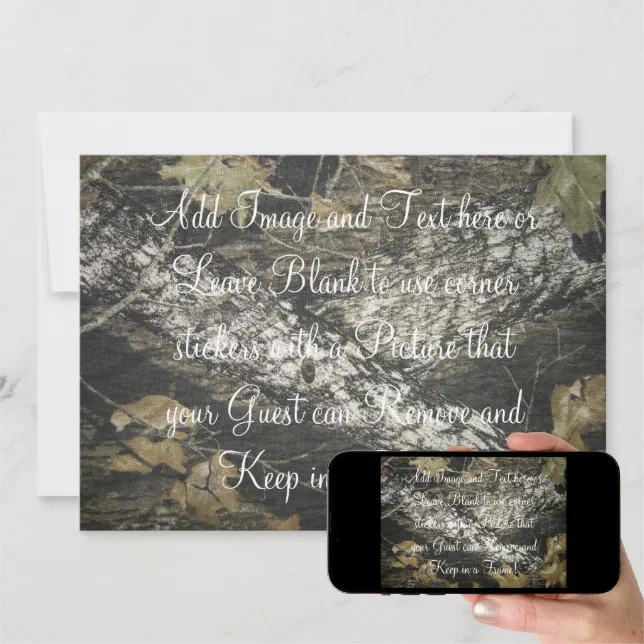 Add Image and Text here or
Leave Blank to use corner
stickers with a Picture that
your Guest can Remove and
Keep in
Add Image and Text here or
Leave Blank to use corner
stickers with a Picture that
your Guest can Remove and
Keep in a Frame!